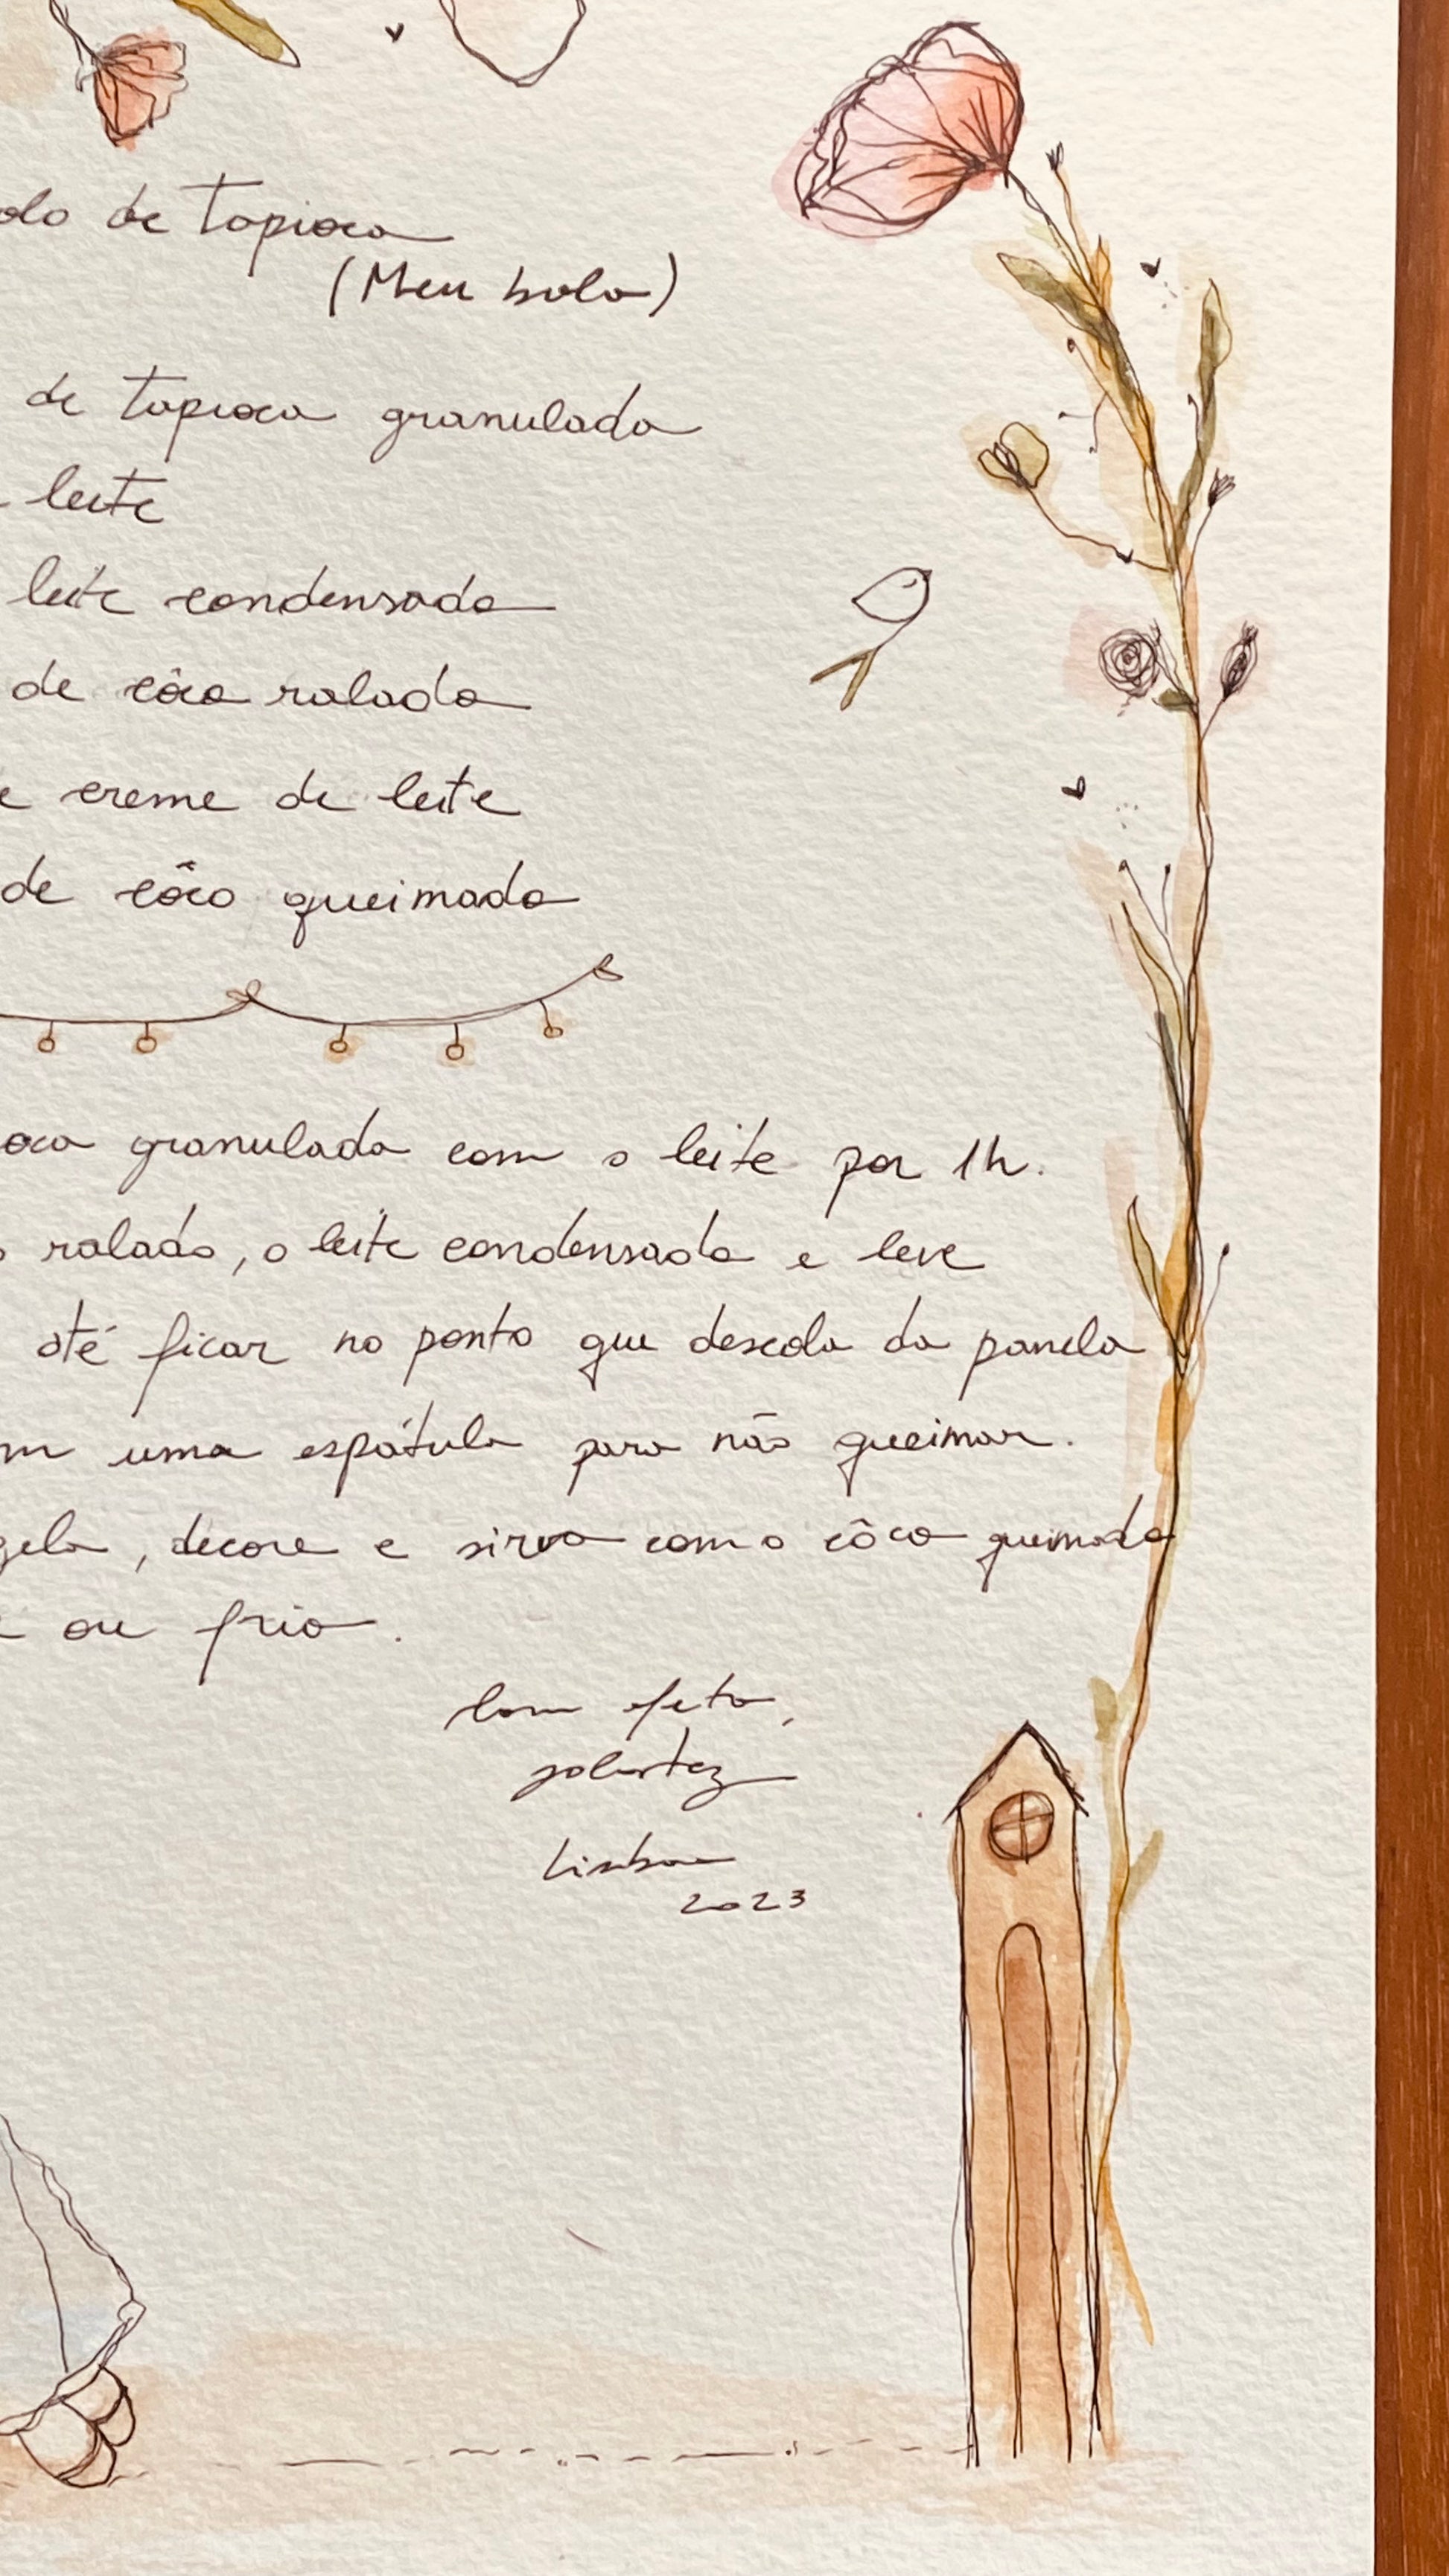 olo de tapioca
(Meu bolo)
de tapioca granulada
leite
leite condensado
de côco ralado
e creme de leite
de côco queimado
oca granulada com o leite por 1h.
o ralado, o leite condensado e leve
até ficar no ponto que descola da panela
m uma espátula para não queimar.
gela, decore e sirva com o côco queimado
e ou frio.
Com afeto,
Lisboa
2023